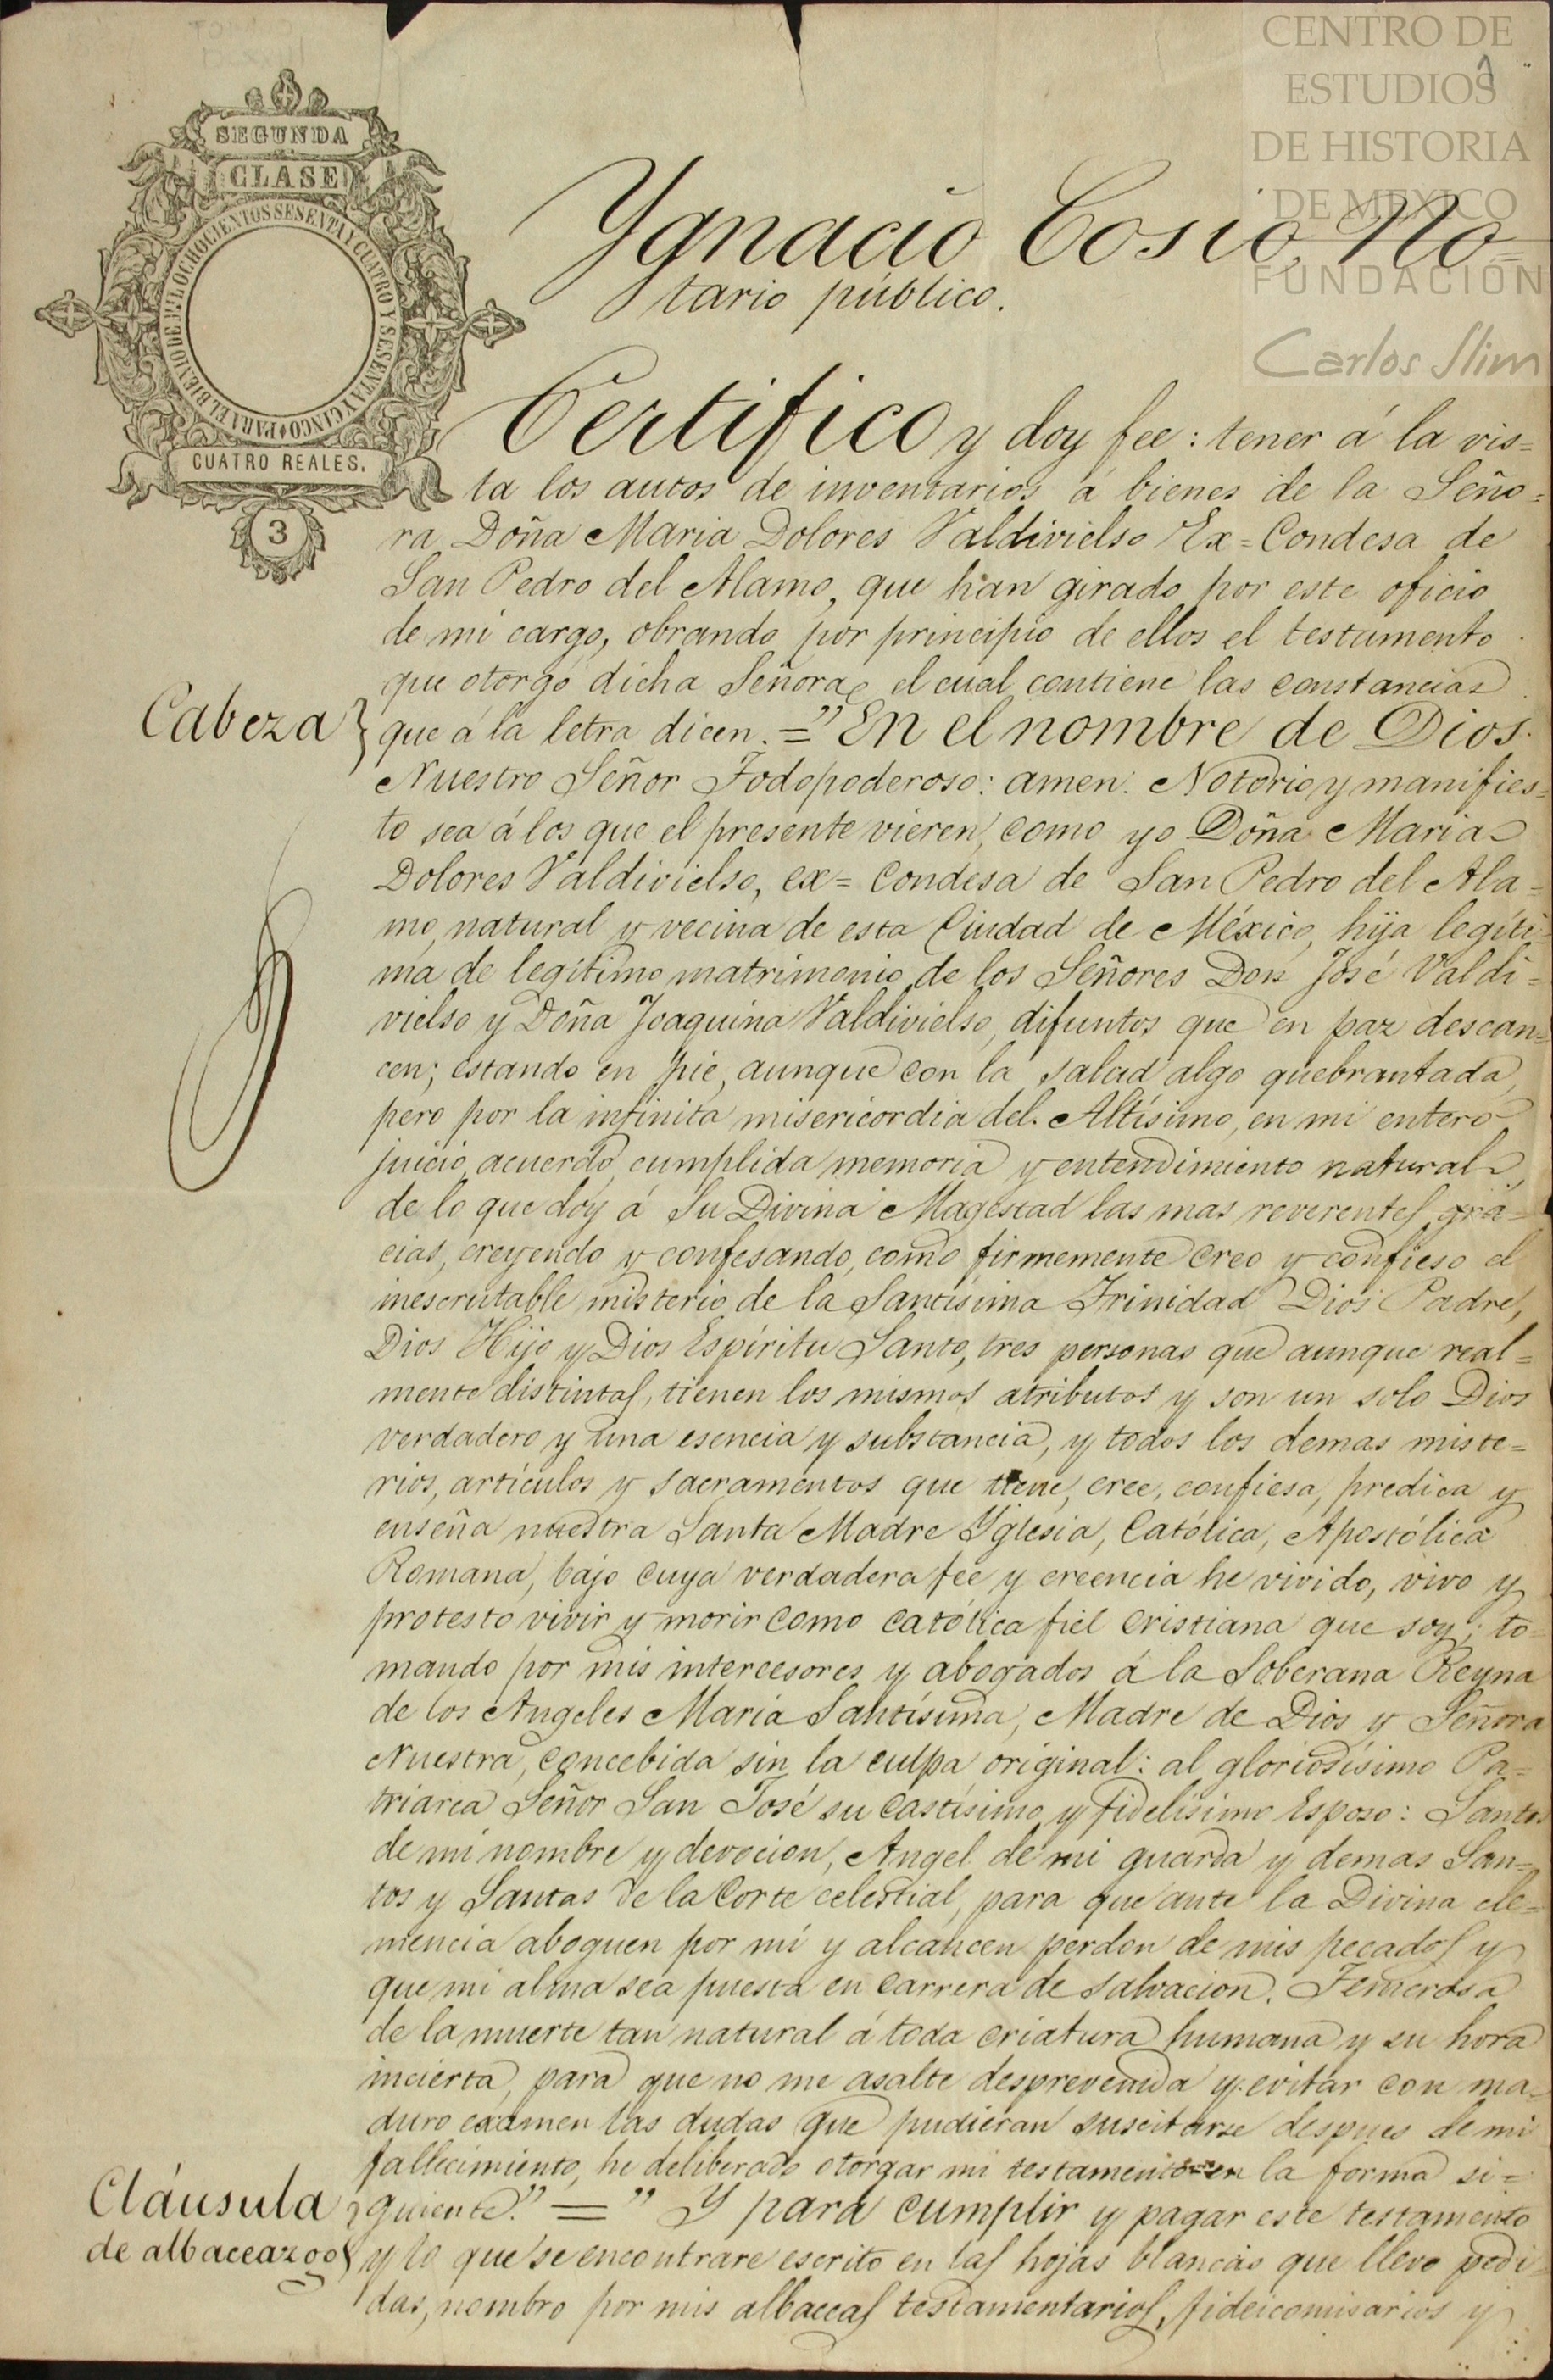 CENTRO DE
ESTUDIOS
DE HISTORIA
DE MEXICO
FUNDACIÓN
Carlos Slim
SEGUNDA
CLASE
PARA EL BIENIO DE MIL OCHOCIENTOS SESENTA Y CUATRO Y SESENTA Y CINCO
CUATRO REALES.
3
Ygnacio Cosio, No=
tario público.
Certifico y doy fee: tener á la vis=
ta los autos de inventarios á bienes de la Seño=
ra Doña Maria Dolores Valdivielso Ex=Condesa de
San Pedro del Alamo, que han girado por este oficio
de mi cargo, obrando por principio de ellos el testamento
que otorgó dicha Señora, el cual contiene las constancias
Cabeza } que á la letra dicen. = "En el nombre de Dios
Nuestro Señor Todopoderoso: amen. Notorio y manifies=
to sea á los que el presente vieren, como yo Doña Maria
Dolores Valdivielso, ex=Condesa de San Pedro del Ala=
mo, natural y vecina de esta Ciudad de México, hija legíti=
ma de legítimo matrimonio de los Señores Don José Valdi=
vielso y Doña Joaquina Valdivielso, difuntos que en paz descan=
cen; estando en pie, aunque con la salud algo quebrantada,
pero por la infinita misericordia del Altísimo, en mi entero
juicio, acuerdo, cumplida memoria y entendimiento natural,
de lo que doy á Su Divina Magestad las mas reverentes gra=
cias, creyendo y confesando, como firmemente creo y confieso el
inescrutable misterio de la Santísima Trinidad Dios Padre,
Dios Hijo y Dios Espíritu Santo, tres personas que aunque real=
mente distintas, tienen los mismos atributos y son un solo Dios
verdadero y una esencia y substancia, y todos los demas miste=
rios, artículos y sacramentos que tiene, cree, confiesa, predica y
enseña nuestra Santa Madre Yglesia, Católica, Apostólica
Romana, bajo cuya verdadera fee y creencia he vivido, vivo y
protesto vivir y morir como católica fiel cristiana que soy; to=
mando por mis intercesores y abogados á la Soberana Reyna
de los Angeles Maria Santísima, Madre de Dios y Señora
Nuestra, concebida sin la culpa original: al gloriosísimo Pa=
triarca Señor San José su castísimo y fidelísimo Esposo: Santos
de mi nombre y devocion, Angel de mi guarda y demas San=
tos y Santas de la Corte celestial, para que ante la Divina cle=
mencia aboguen por mí y alcancen perdon de mis pecados y
que mi alma sea puesta en carrera de salvacion. Temerosa
de la muerte tan natural á toda criatura humana y su hora
incierta, para que no me asalte desprevenida y evitar con ma=
duro exámen las dudas que pudieran suscitarse despues de mi
fallecimiento, he deliberado otorgar mi testamento en la forma si=
Cláusula } guiente." = "Y para cumplir y pagar este testamento
de albaceazgo } y lo que se encontrare escrito en las hojas blancas que llevo pedi=
das, nombro por mis albaceas testamentarios, fideicomisarios y